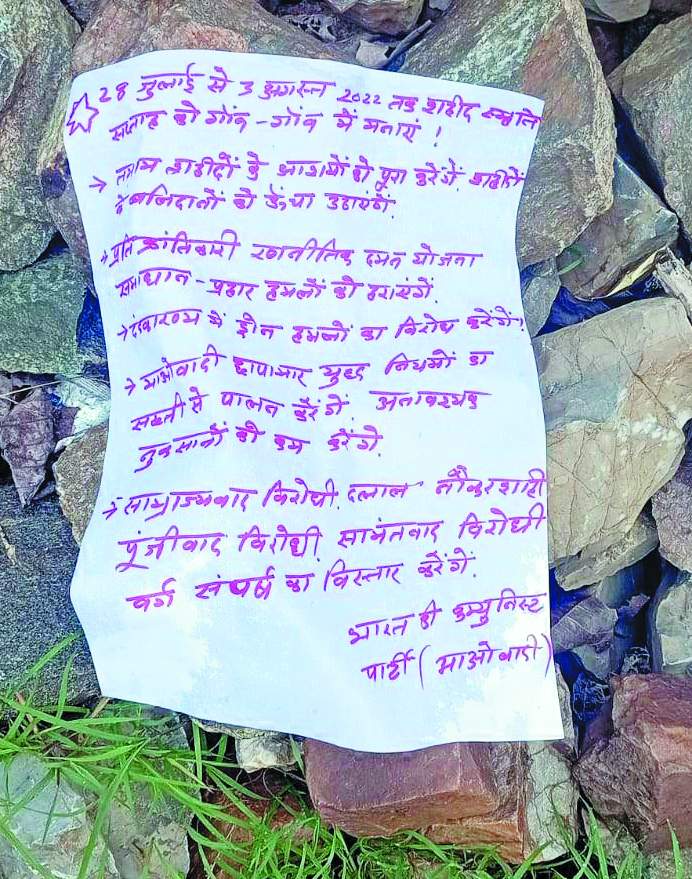 28 जुलाई से 3 अगस्त 2022 तक शहीद स्मृति
सप्ताह को गाँव - गाँव में मनाएं !
→ तमाम शहीदों के आशयों को पूरा करेंगे. शहीदों
के बलिदानों को ऊँचा उठाएंगे.
→ प्रति क्रांतिकारी रणनीतिक दमन योजना
समाधान - प्रहार हमलों को हराएंगे.
→ दंडकारण्य में ड्रोन हमलों का विरोध करेंगे!
→ माओवादी छापामार युद्ध नियमों का
सख्ती से पालन करेंगे. अनावश्यक
नुकसानों को कम करेंगे.
→ साम्राज्यवाद विरोधी. दलाल नौकरशाही
पूंजीवाद विरोधी. सामंतवाद विरोधी
वर्ग संघर्ष का विस्तार करेंगे.
भारत की कम्युनिस्ट
पार्टी (माओवादी)